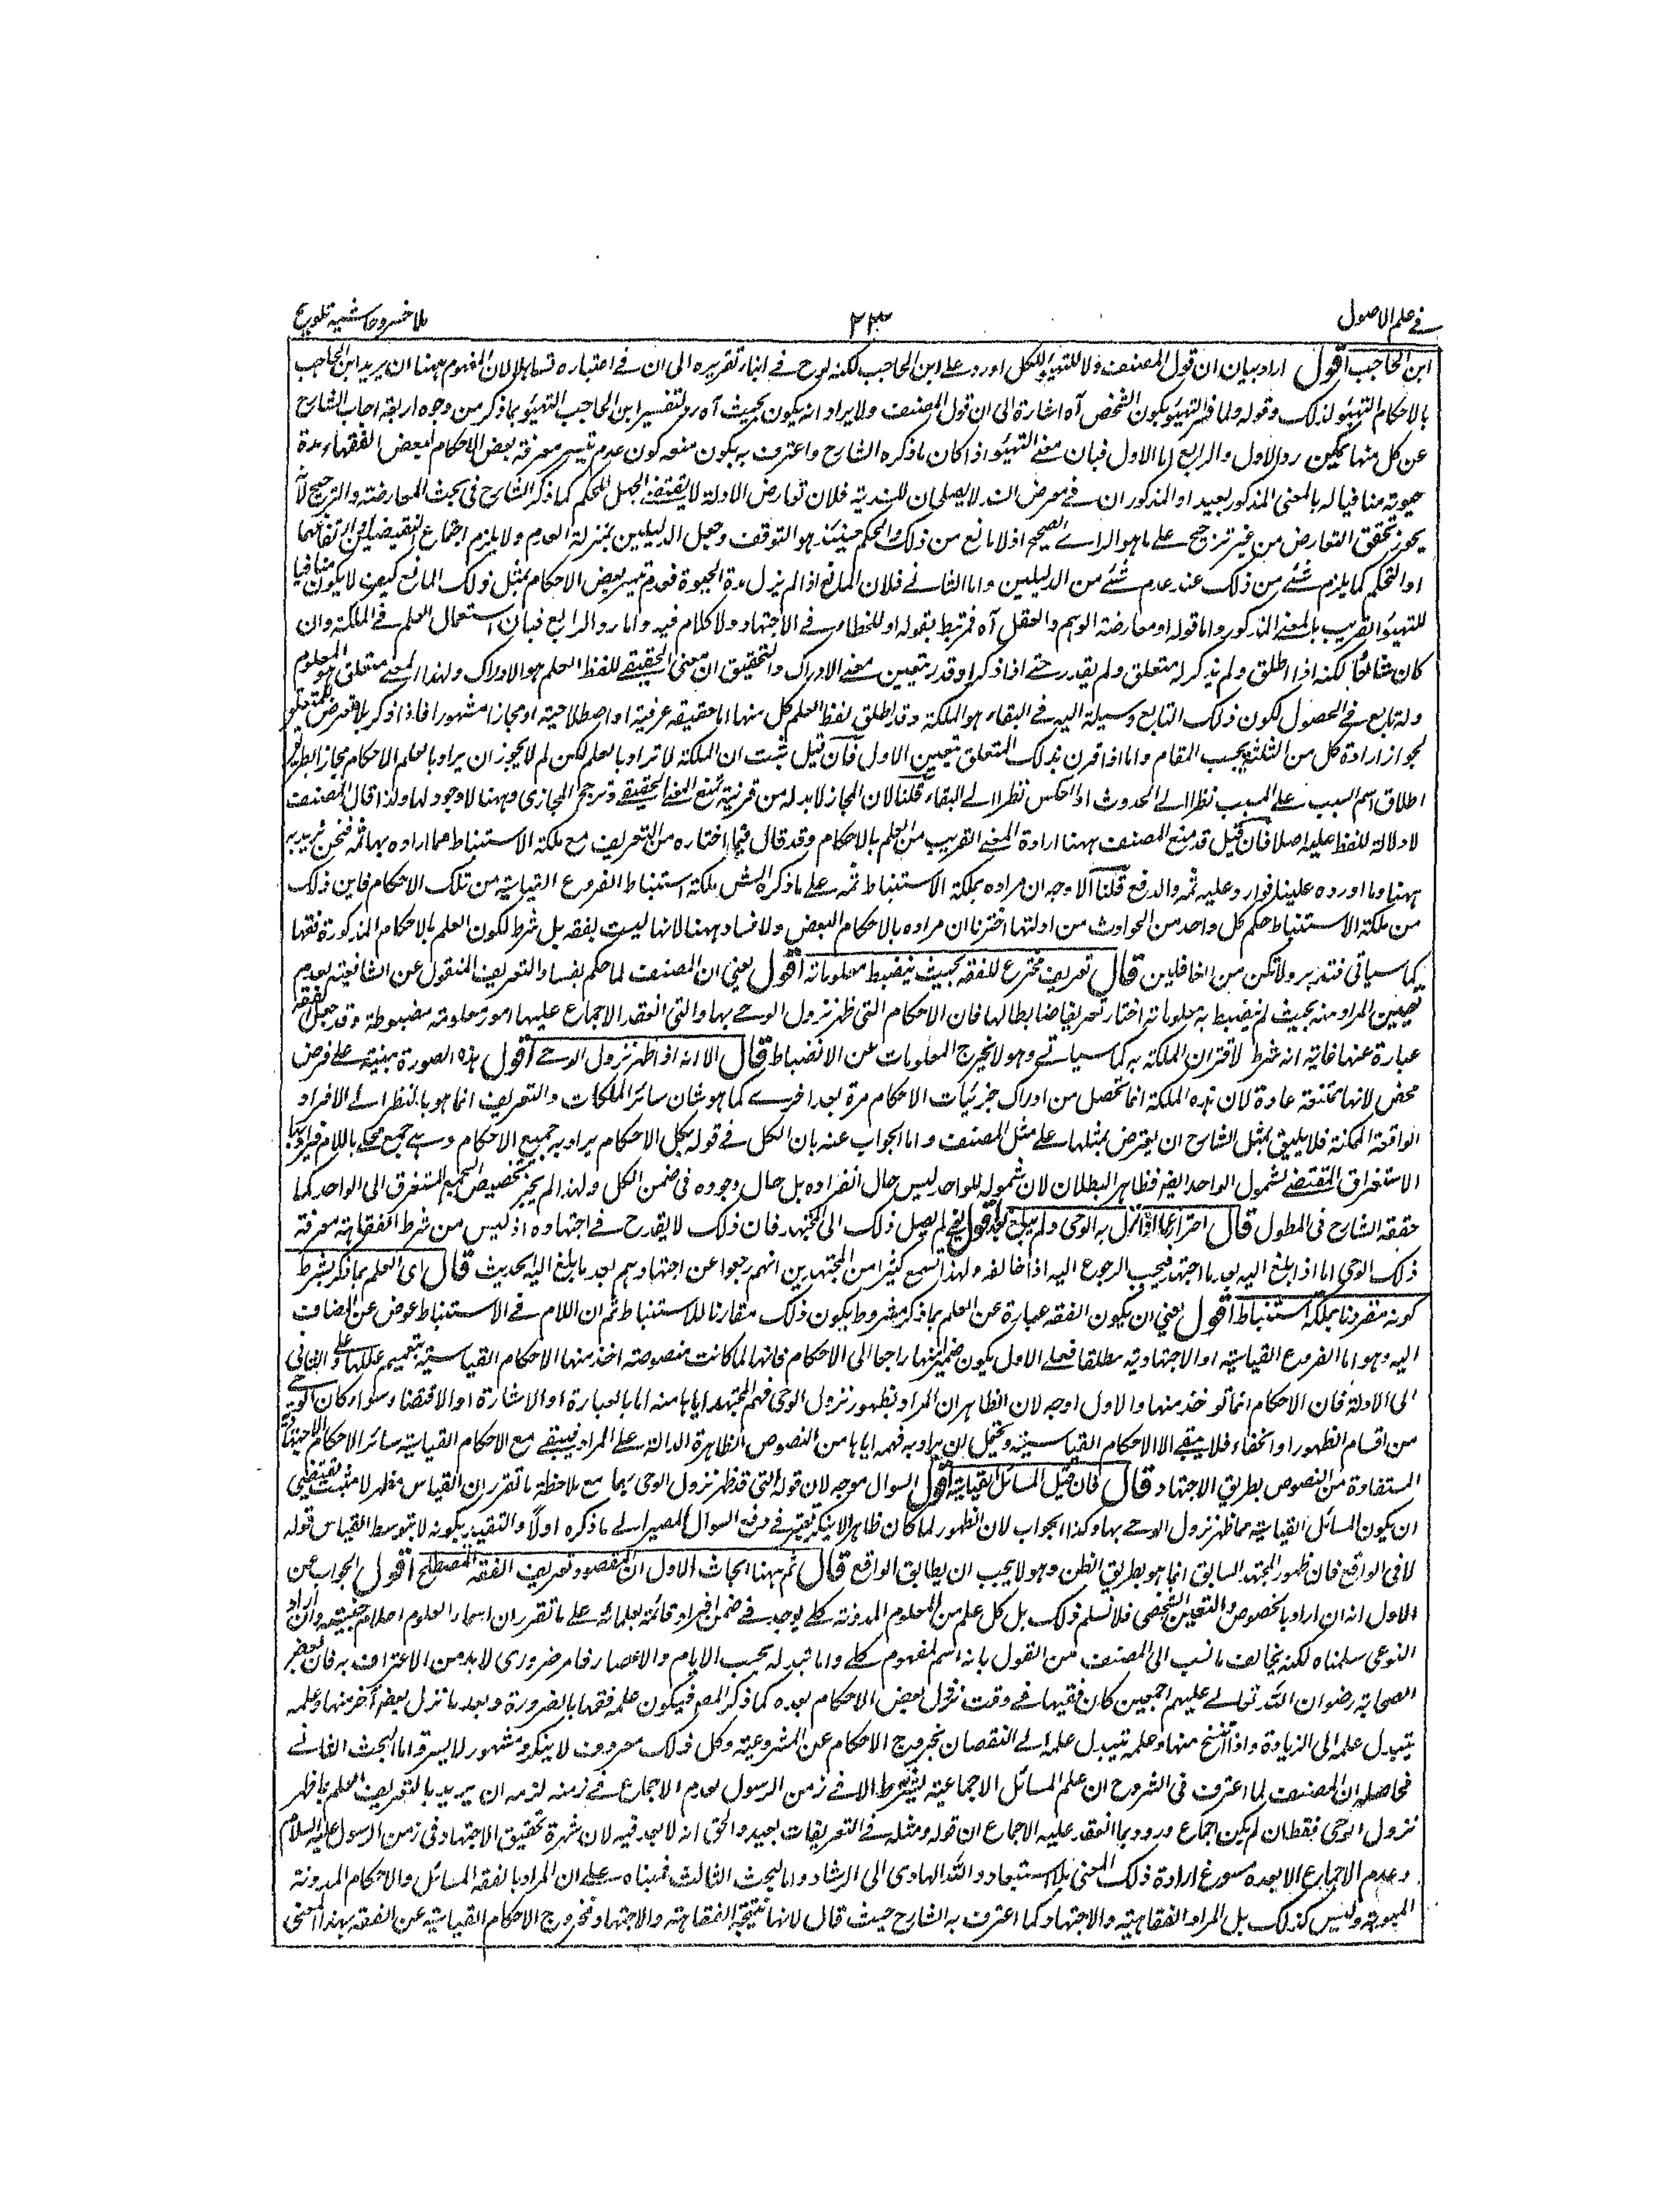 في علم الاصول
٢٣
ملا خسرو حاشية تلويح
ابن الحاجب اقول اراد بيان ان قول المصنف ولا للتهيؤ للكل اورد على ابن الحاجب لكنه لوح في اثناء تقريره الى ان في اعتباره تساهلا لان المفهوم ههنا ان يريد ابن الحاجب
بالاحكام التهيؤ لذلك وقوله ولما فسر التهيؤ بكون الشخص آه اشارة الى ان قول المصنف ولا يراد انه يكون بحيث آه رد لتفسير ابن الحاجب التهيؤ بما ذكر من وجوه اربعة اجاب الشارح
عن كل منها يمكن رد الاول والرابع اما الاول فبان معنى التهيؤ اذا كان ما ذكره الشارح واعترف به يكون منعه كون عدم تيسر معرفة بعض الاحكام لبعض الفقهاء مدة
حيوته منافيا له بالمعنى المذكور بعيد او المذكور ان في معرض السند لا يصلحان للسندية فلان تعارض الادلة لا يقتضي الجهل للحكم كما ذكر الشارح في بحث المعارضة والترجيح لانه
يجوز تحقق التعارض من غير ترجيح على ما هو الراى الصحيح اذ لا مانع من ذلك والحكم حينئذ هو التوقف وجعل الدليلين بمنزلة العدم ولا يلزم اجتماع النقيضين او ارتفاعهما
او التحكم كما يلزم شئ من ذلك عند عدم شئ من الدليلين واما الثاني فلان المانع اذا لم يزل مدة الحيوة فعدم تيسر بعض الاحكام بمثل ذلك المانع كيف لا يكون منافيا
للتهيؤ القريب بالمعنى المذكور واما قوله او معارضة الوهم والعقل آه فمرتبط بقوله او للخطاء في الاجتهاد ولا كلام فيه واما رد الرابع فبان استعمال العلم في الملكة وان
كان شائعا لكنه اذا اطلق ولم يذكر له متعلق ولم يقدر حتى اذا ذكر او قدر يتعين معنى الادراك والتحقيق ان معنى الحقيقي للفظ العلم هو الادراك ولهذا المعنى متعلق هو المعلوم
وله تابع في الحصول لكون ذلك التابع وسيلة اليه في البقاء هو الملكة وقد اطلق لفظ العلم كل منها اما حقيقة عرفية او اصطلاحية او مجازا مشهورا فاذا ذكر بلا تعرض للمتعلق
لجواز ارادة كل من الثلثة بحسب المقام واما اذا قرن بذلك المتعلق تعين الاول فان قيل ثبت ان الملكة لا تراد بالعلم لكن لم لا يجوز ان يراد بالعلم الاحكام مجازا بطريق
اطلاق اسم السبب على المسبب نظرا الى الحدوث او العكس نظرا الى البقاء قلنا لان المجاز لا بد له من قرينة تمنع المعنى الحقيقي وترجح المجازي وههنا لا وجود لها ولذا قال المصنف
لا دلالة للفظ عليه اصلا فان قيل قد منع المصنف ههنا ارادة المعنى القريب من العلم بالاحكام وقد قال فيما اختاره من التعريف مع ملكة الاستنباط فما اراده بها ثمه فنحن نريد به
ههنا وما اورده علينا فوارد عليه ثمه والدفع قلنا الاوجه ان مراده بملكة الاستنباط ثمه على ما ذكره الش ملكة استنباط الفروع القياسية من تلك الاحكام فاين ذلك
من ملكة الاستنباط حكم كل واحد من الحوادث من ادلتها اخترنا ان مراده بالاحكام البعض ولا فساد ههنا لانها ليست بفقه بل شرط لكون العلم بالاحكام المذكورة فقها
كما سياتي فتدبر ولا تكن من الغافلين قال تعريف مخترع للفقه بحيث ينضبط معلوماته اقول يعني ان المصنف لما حكم بفساد التعريف المنقول عن الشافعية بعدم
تعيين المراد منه بحيث لم ينضبط به معلوماته اختار تعريفا ضابطا لها فان الاحكام التي ظهر نزول الوحي بها والتي انعقد الاجماع عليها امور معلومة مضبوطة وقد جعل الفقه
عبارة عنها غايته انه شرط لاقتران الملكة به كما سياتي وهو لا يخرج المعلومات عن الانضباط قال الا انه اذا ظهر نزول الوحي اقول هذه الصورة مبنية على فرض
محض لانها ممتنعة عادة لان هذه الملكة انما تحصل من ادراك جزئيات الاحكام مرة بعد اخرى كما هو شان سائر الملكات والتعريف انما هو بالنظر الى الافراد
الواقعة الممكنة فلا يليق بمثل الشارح ان يعترض بمثلها على مثل المصنف واما الجواب عنه بان الكل في قوله بكل الاحكام يراد به جميع الاحكام وهى جمع محلى باللام فيراد بها
الاستغراق المقتضي لشمول الواحد ايضا فظاهر البطلان لان شموله للواحد ليس حال انفراده بل حال وجوده في ضمن الكل ولهذا لم يجز تخصيص الجمع المستغرق الى الواحد كما
حققه الشارح في المطول قال احترازا عما اذا نزل به الوحي ولم يبلغ بعد اقول يعني لم يصل ذلك الى المجتهد فان ذلك لا يقدح في اجتهاده اذ ليس من شرط الفقاهة معرفة
ذلك الوحي اما اذا بلغ اليه بعد ما اجتهد فيجب الرجوع اليه اذا خالفه ولهذا تسمع كثيرا من المجتهدين انهم رجعوا عن اجتهادهم بعد ما بلغ اليه الحديث قال اى العلم بما ذكر بشرط
كونه مقرونا بملكة استنباط اقول يعني ان يكون الفقه عبارة عن العلم بما ذكر مشروط بكون ذلك مقارنا للاستنباط ثم ان اللام في الاستنباط عوض عن المضاف
اليه وهو اما الفروع القياسية او الاجتهادية مطلقا فعلى الاول يكون ضمير منها راجعا الى الاحكام فانها لما كانت منصوصة اخذ منها الاحكام القياسية بتعميم عللها وعلى الثاني
الى الادلة فان الاحكام انما توخذ منها والاول اوجه لان الظاهر ان المراد بظهور نزول الوحي فهم المجتهد اياها منه اما بالعبارة او الاشارة او الاقتضاء وسواء كان الوحي
من اقسام الظهور او الخفاء فلا يبقى الا الاحكام القياسية ويحتمل ان يراد به فهمه اياها من النصوص الظاهرة الدالة على المراد فيبقى مع الاحكام القياسية سائر الاحكام الاجتهادية
المستفادة من النصوص بطريق الاجتهاد قال فان قيل المسائل القياسية اقول السوال موجه لان قوله التي قد ظهر نزول الوحي بها مع ملاحظة ما تقرر ان القياس مظهر لا مثبت يقتضي
ان يكون المسائل القياسية مما ظهر نزول الوحي بها وكذا الجواب لان الظهور لما كان ظاهرا في دفع السوال المصير الى ما ذكره اولا والتقييد بكونه لا بتوسط القياس قوله
لا في الواقع فان ظهور المجتهد السابق انما هو بطريق الظن وهو لا يجب ان يطابق الواقع قال ثم ههنا ابحاث الاول ان المقصود تعريف الفقه المصطلح اقول الجواب عن
الاول انه ان اراد بالخصوص والتعين الشخصي فلا نسلم ذلك بل كل علم من العلوم المدونة كلى يوجد في ضمن افراد قائمة بعلمائه على ما تقرر ان اسماء العلوم اعلام جنسية وان اراد
النوعي سلمناه لكنه يخالف ما نسب الى المصنف من القول بانه اسم لمفهوم كلى واما تبدله بحسب الايام والاعصار فامر ضروري لا بد من الاعتراف به فان بعض
الصحابة رضوان الله تعالى عليهم اجمعين كان فقيها في وقت نزول بعض الاحكام بعده كما ذكر المص فيكون علمه فقها بالضرورة وبعد ما نزل بعض آخر منها وعلمه
يتبدل علمه الى الزيادة واذا انتسخ منها وعلمه تبدل علمه الى النقصان بخروج الاحكام عن المشروعية وكل ذلك معروف لا ينكر ومشهور لا يستر واما البحث الثاني
فحاصله ان المصنف لما اعترف في الشروح ان علم المسائل الاجماعية يشترط الا في زمن الرسول لعدم الاجماع في زمنه لزمه ان يريد بالتعريف العلم بما ظهر
نزول الوحي فقط ان لم يكن اجماع وبه وبما انعقد عليه الاجماع ان قوله ومثله في التعريفات بعيد والحق انه لا بعد فيه لان شهرة تحقيق الاجتهاد في زمن الرسول عليه السلام
وعدم الاجماع الا بعده سوغ ارادة ذلك المعنى بلا استبعاد والله الهادي الى الرشاد واما البحث الثالث فمبناه على ان المراد بالفقه المسائل والاحكام المدونة
المبوبة وليس كذلك بل المراد الفقاهية والاجتهاد كما اعترف به الشارح حيث قال لانها نتيجة الفقاهة والاجتهاد فخروج الاحكام القياسية عن الفقه بهذا المعنى